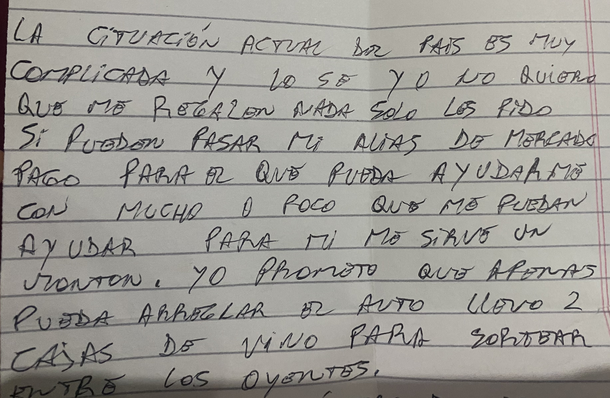 LA CITUACIÓN ACTUAL DEL PAIS ES MUY
COMPLICADA Y LO SE YO NO QUIERO
QUE ME REGALEN NADA SOLO LES PIDO
SI PUEDEN PASAR MI ALIAS DE MERCADO
PAGO PARA EL QUE PUEDA AYUDARME
CON MUCHO O POCO QUE ME PUEDAN
AYUDAR PARA MI ME SIRVE UN
MONTON. YO PROMETO QUE APENAS
PUEDA ARREGLAR EL AUTO LLEVO 2
CAJAS DE VINO PARA SORTEAR
ENTRE LOS OYENTES.